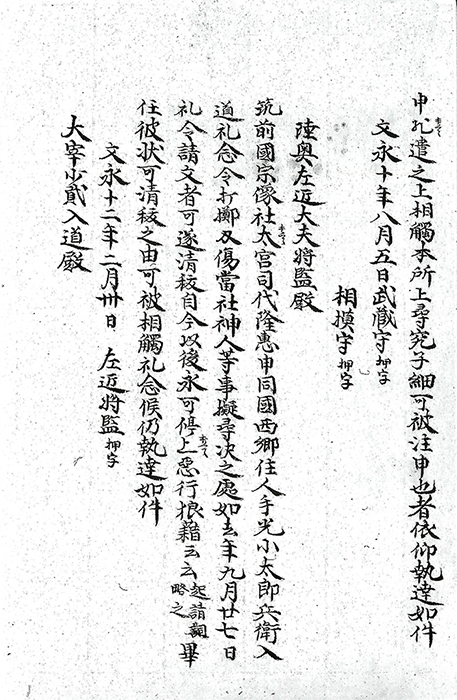 申札遣之上相觸本所上尋究子細可被注申也者依仰執達如件
文永十年八月五日武藏守押字
相摸守押字
陸奥左近大夫将監殿
筑前國宗像社太宮司代隆惠申同國西郷住人手光小太郎兵衛入
道礼念令打擲刃傷當社神人等事擬尋决之處如去年九月廿七日
礼令請文者可遂清祓自今以後永可停止悪行狼藉云云起請詞略之畢
任彼状可清祓之由可被相觸礼念候仍執達如件
文永十二年二月卅日 左近将監押字
大宰少貳入道殿